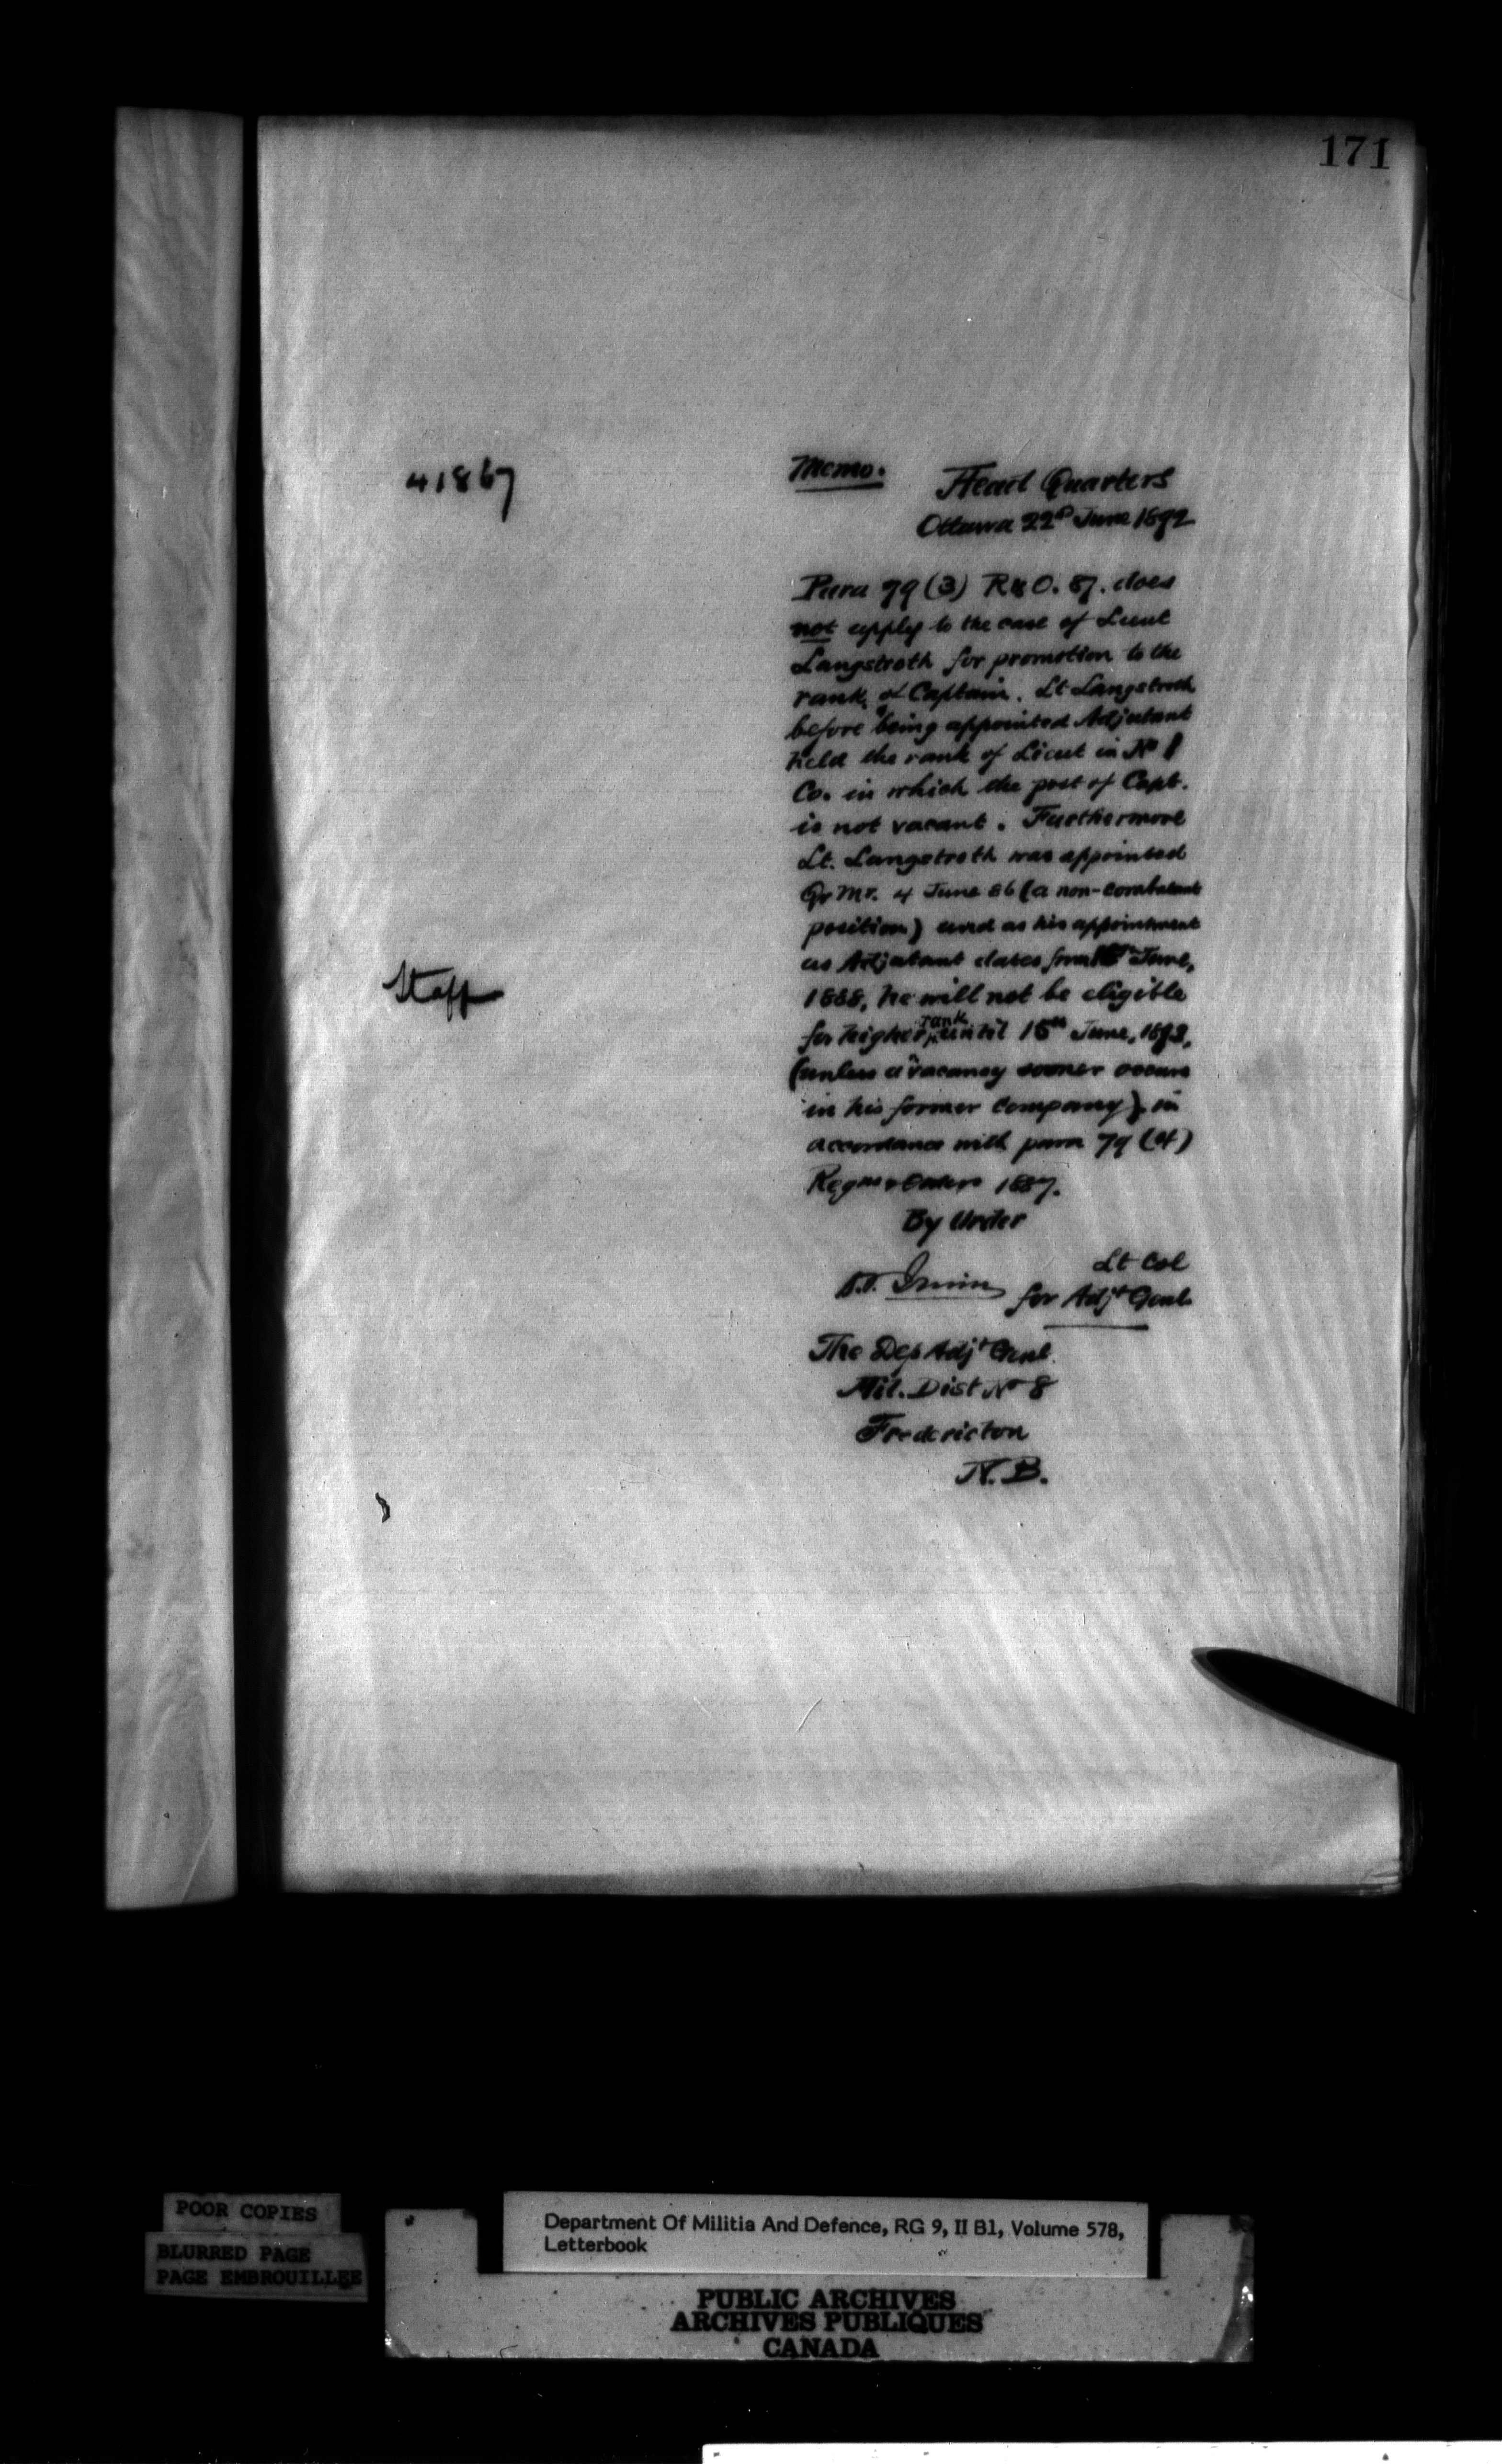 171
41867
Memo.
Head Quarters
Ottawa 22d June 1892
Para 79 (3) R & O. 87. does
not apply to the case of Lieut
Langstroth for promotion to the
rank of Captain. Lt Langstroth
before being appointed Adjutant
held the rank of Lieut in No 1
Co. in which the post of Capt.
is not vacant. Furthermore
Lt. Langstroth was appointed
Qr Mr. 4 June 86 (a non-combatant
position) and as his appointment
as Adjutant dates from 15th June,
Staff
1888, he will not be eligible
for higher rank until 15th June, 1893,
(unless a vacancy sooner occurs
in his former Company) in
accordance with para 79 (4)
Regns & Orders 1887.
By Order
Irwin Lt Col
for Adjt Genl
The Dep Adjt Genl.
Mil. Dist No 8
Fredericton
N.B.
POOR COPIES
BLURRED PAGE
PAGE EMBROUILLEE
Department Of Militia And Defence, RG 9, II B1, Volume 578,
Letterbook
PUBLIC ARCHIVES
ARCHIVES PUBLIQUES
CANADA